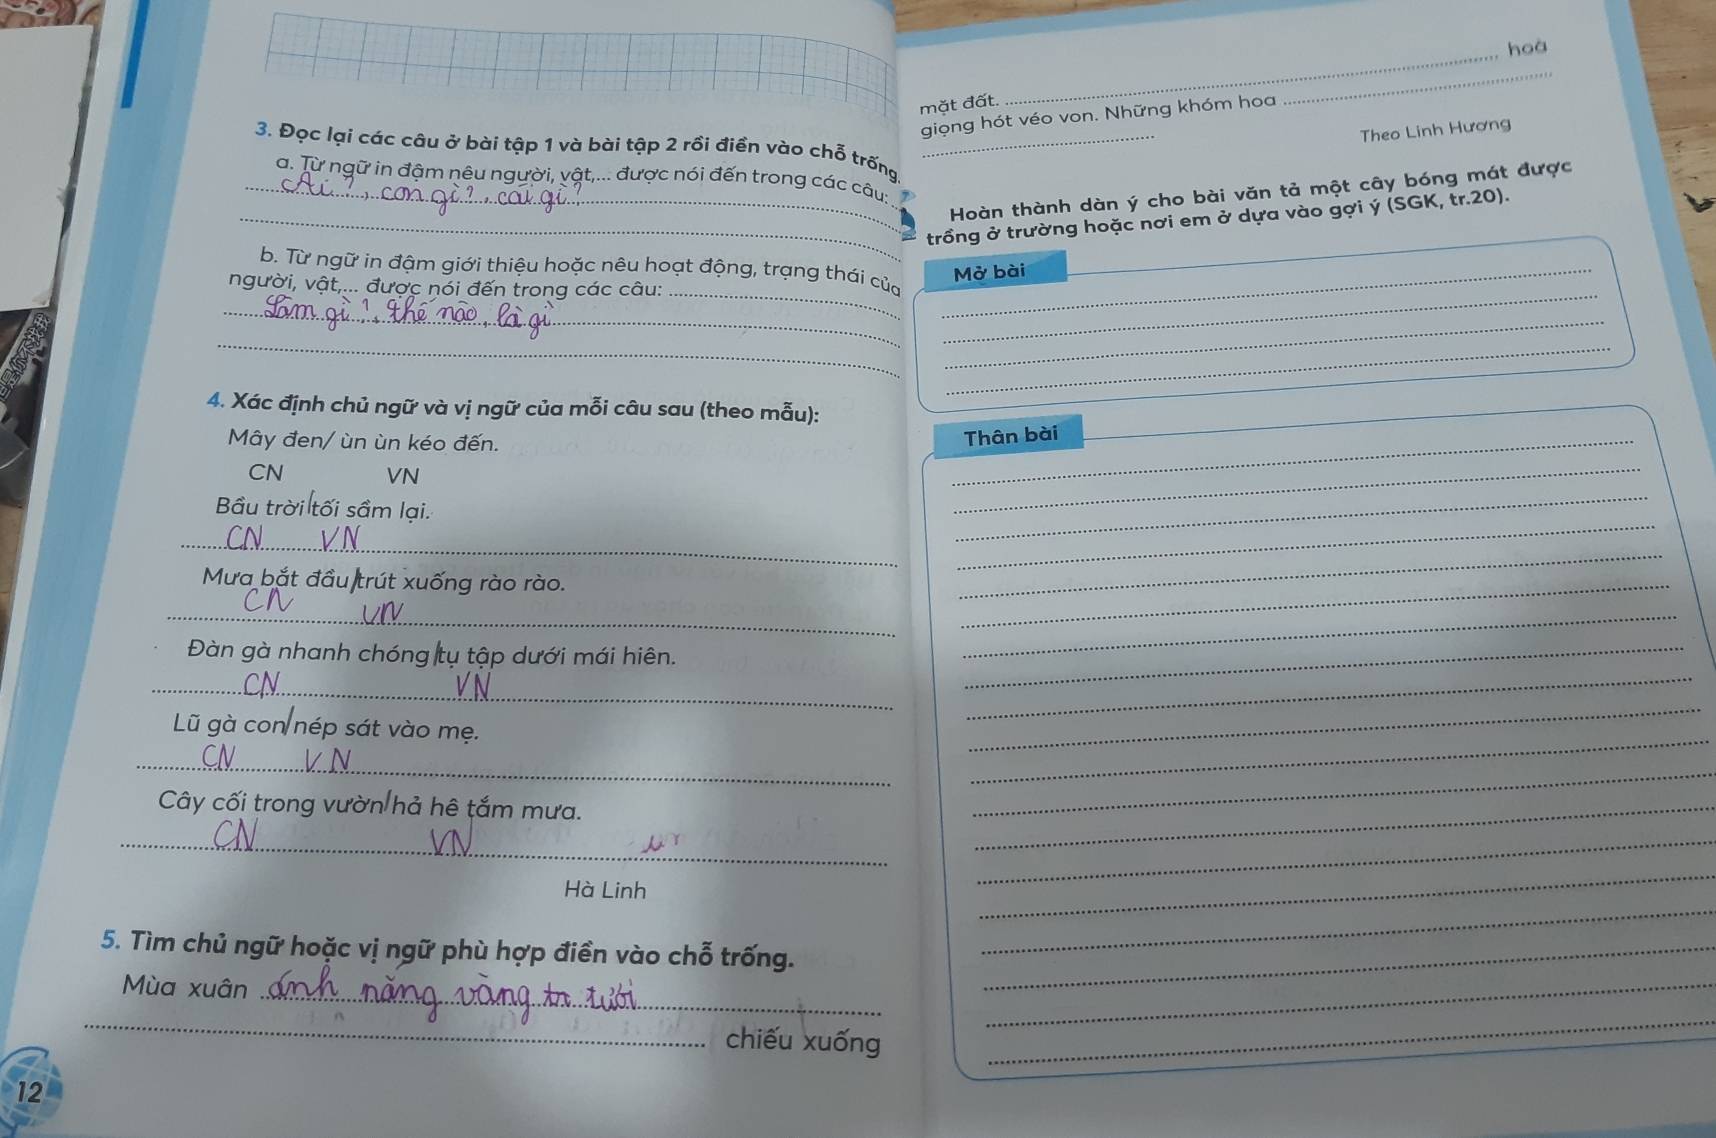 3. Đọc lại các câu ở bài tập 1 và bài tập 2 rồi điền vào chỗ trống.
a. Từ ngữ in đậm nêu người, vật,... được nói đến trong các câu:
Ai ?, con gì ?, cái gì ?
b. Từ ngữ in đậm giới thiệu hoặc nêu hoạt động, trạng thái của
người, vật,... được nói đến trong các câu:
Làm gì ?, thế nào, là gì
4. Xác định chủ ngữ và vị ngữ của mỗi câu sau (theo mẫu):
Mây đen/ ùn ùn kéo đến.
CN VN
Bầu trời/tối sầm lại.
CN VN
Mưa bắt đầu/trút xuống rào rào.
CN VN
Đàn gà nhanh chóng/tụ tập dưới mái hiên.
CN VN
Lũ gà con/nép sát vào mẹ.
CN VN
Cây cối trong vườn/hả hê tắm mưa.
CN VN
Hà Linh
5. Tìm chủ ngữ hoặc vị ngữ phù hợp điền vào chỗ trống.
Mùa xuân ánh nắng vàng tươi
chiếu xuống
12
hoà
mặt đất.
giọng hót véo von. Những khóm hoa
Theo Linh Hương
Hoàn thành dàn ý cho bài văn tả một cây bóng mát được
trồng ở trường hoặc nơi em ở dựa vào gợi ý (SGK, tr.20).
Mở bài
Thân bài